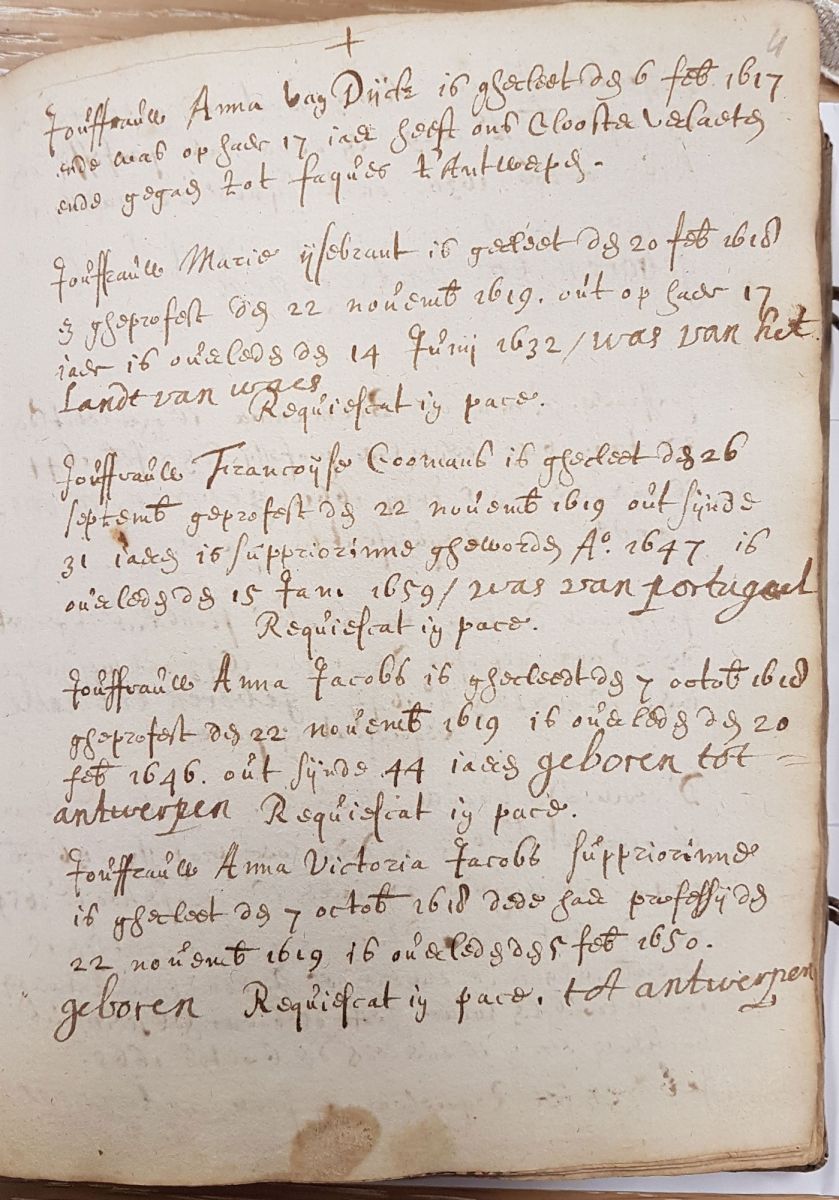 4
+
Jouffrauw Anna van Dÿck is ghecleet den 6 feb 1617
ende was op haer 17 iaer heeft ons Clooster verlaeten
ende gegaen tot faques t'Antwerpen.
Jouffrauw Marie ijsebrant is gecleet den 20 feb 1618
en gheprofest den 22 novemb 1619. out op haer 17
iaer is overleden den 14 Junij 1632 / was van het
Landt van waes
Requiescat in pace.
Jouffrauw Francoÿse Coomans is ghecleet den 26
septemb geprofest den 22 novemb 1619 out sÿnde
31 iaeren is suppriorinne gheworden Aº. 1647 is
overleden den 15 Jani 1659 / was van portugael
Requiescat in pace.
Jouffrauw Anna Jacobs is ghecleedt den 7 octob 1618
gheprofest den 22 novemb 1619 is overleden den 20
feb 1646. out sÿnde 44 iaeren geboren tot =
antwerpen Requiescat in pace.
Jouffrauw Anna Victoria Jacobs suppriorinne
is ghecleet den 7 octob 1618 dede haer professÿ den
22 novemb 1619 is overleden den 5 feb 1650.
geboren Requiescat in pace. tot antwerpen